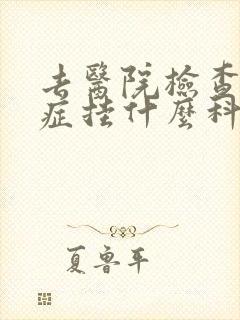 去醫院檢查
症挂什麼科
夏鲁平